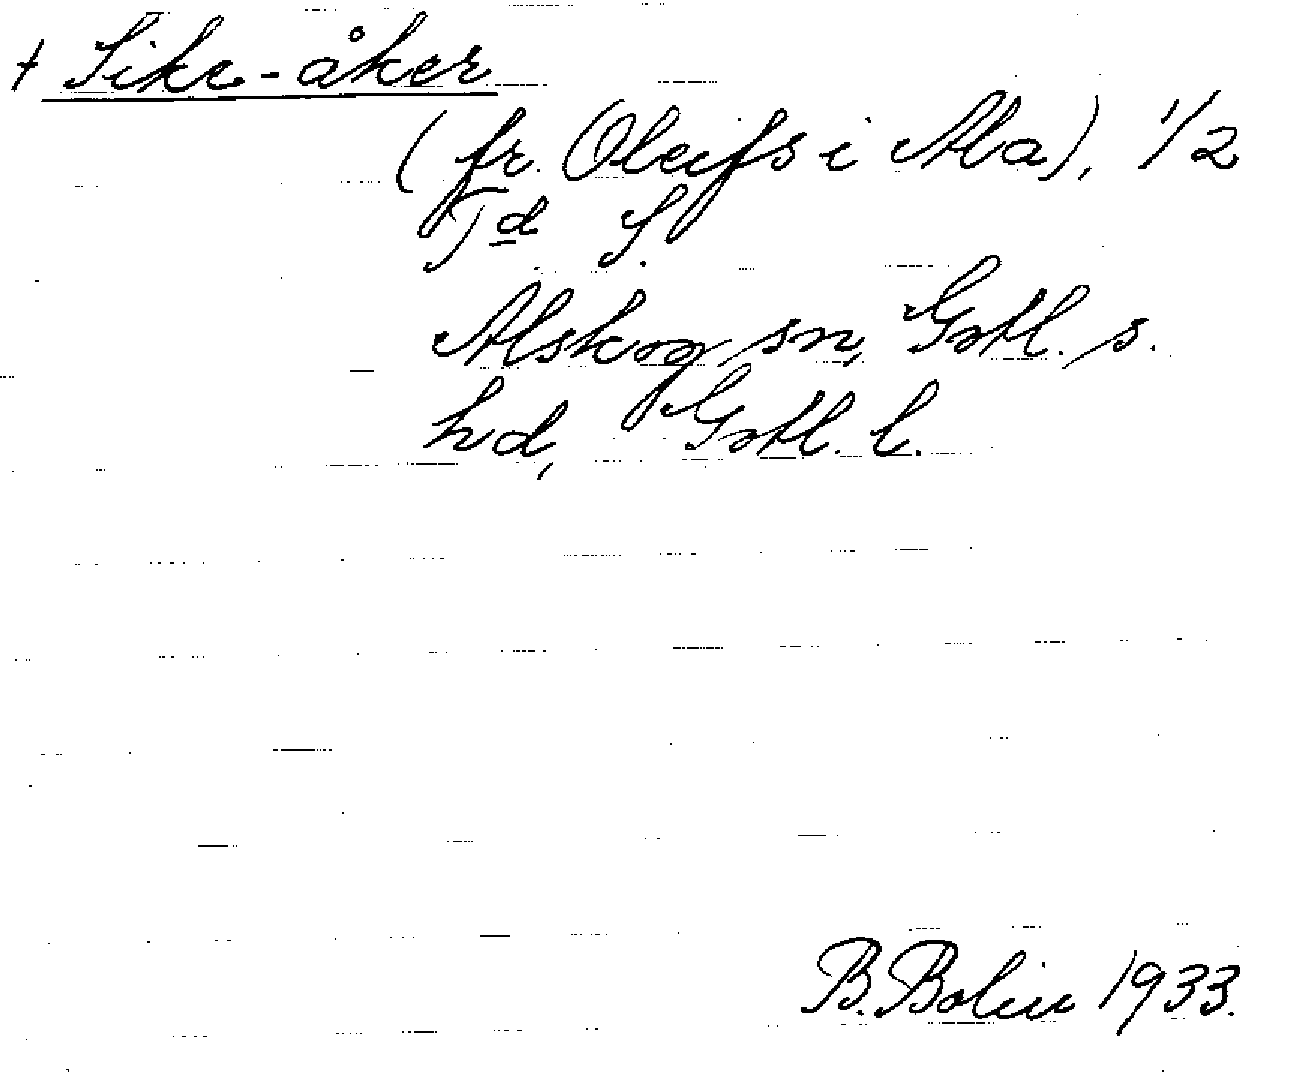 + Sike-åker
(fr. Oleifs i Ala), 1/2
Td S.
Alskog sn, Gotl. s.
hd, Gotl. l.
B. Bolin 1933.